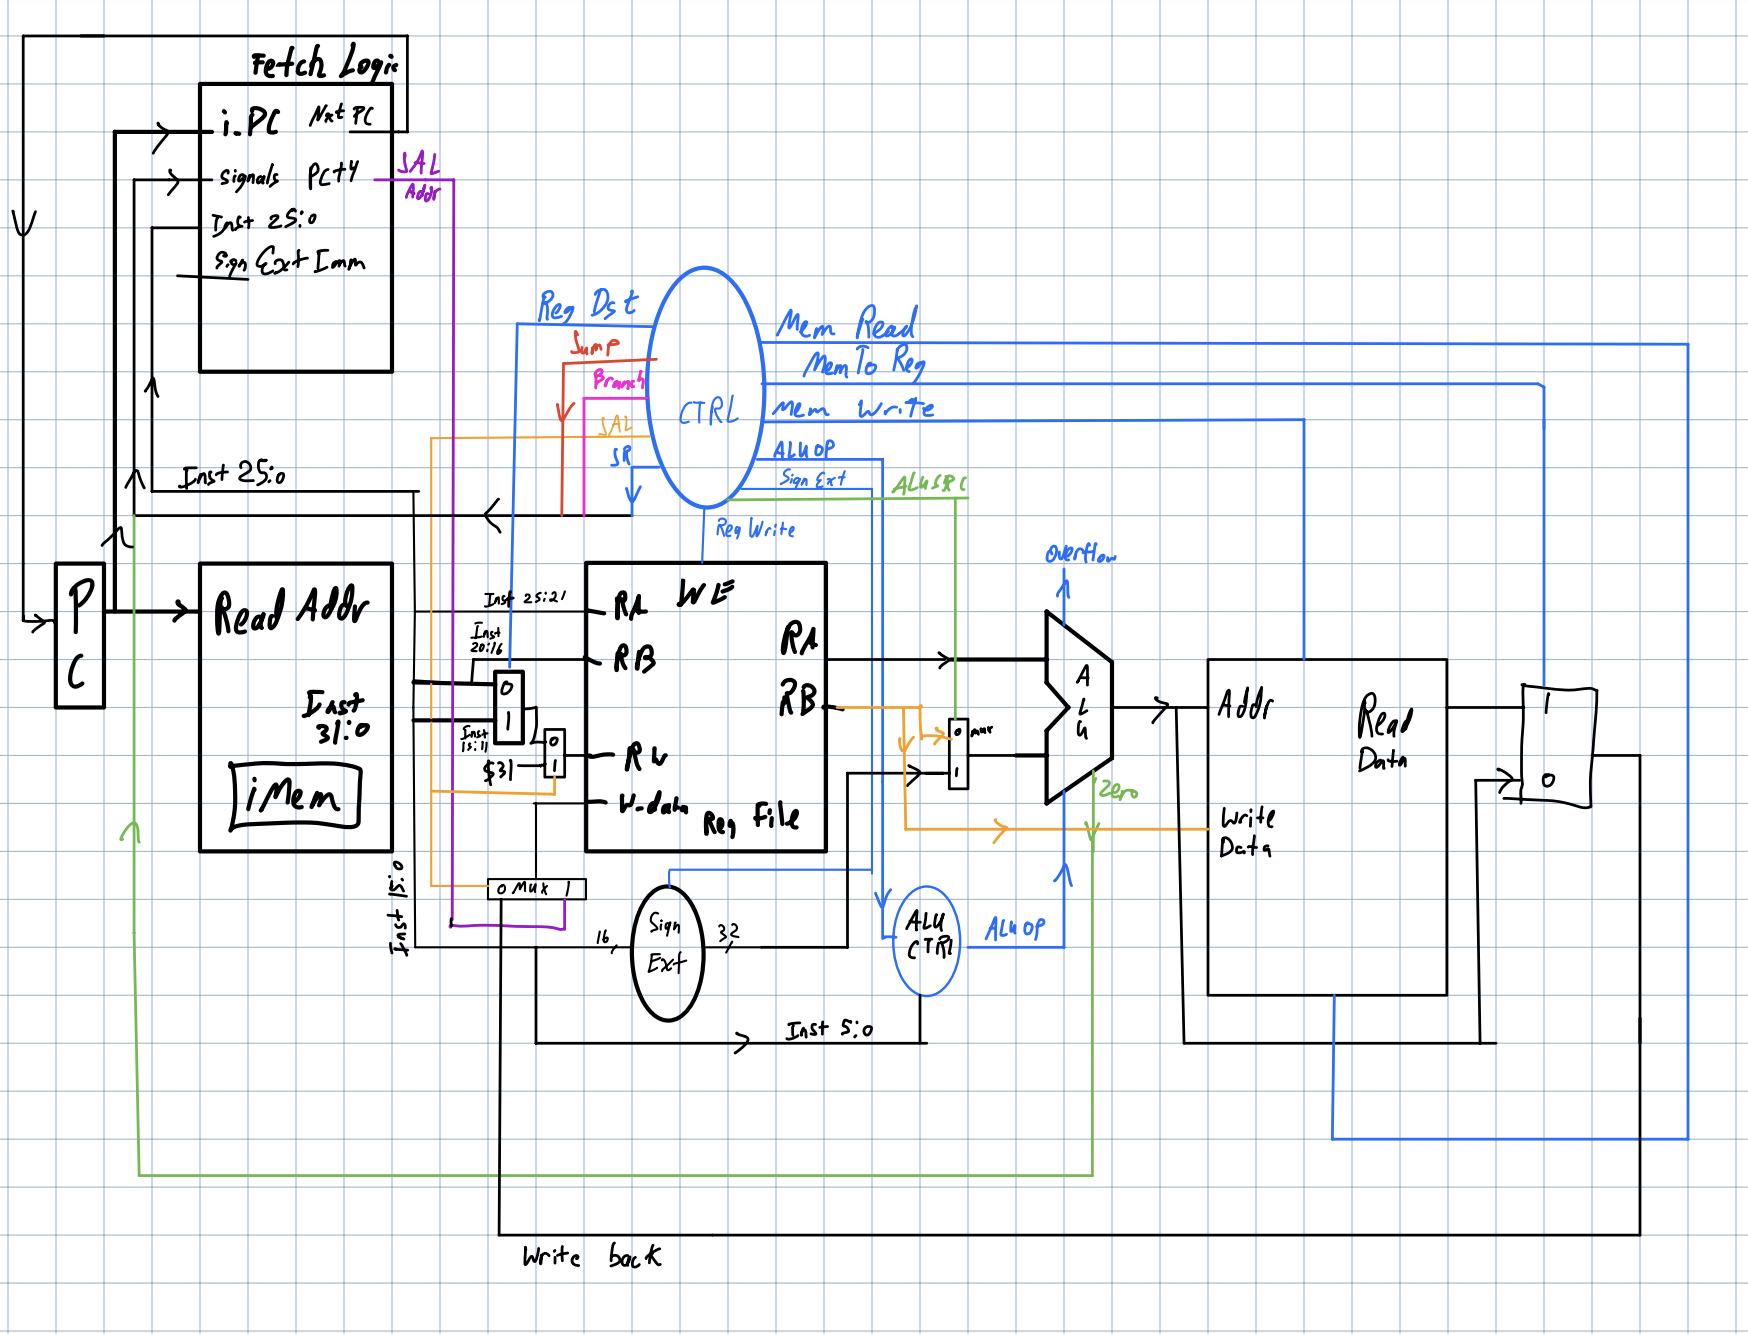 Fetch Logic
i-PC Nxt PC
Signals PC+4
JAL
Addr
Inst 25:0
Sign Ext Imm
Reg Dst
Jump
Branch
JAL
JR
CTRL
Mem Read
MemTo Reg
Mem Write
ALUOP
Sign Ext
ALUSRC
Reg Write
Inst 25:0
Overflow
P
C
Read Addr
Inst
31:0
iMem
Inst 25:21
Inst
20:16
0
1
Inst
15:11
$31
0
1
WE
RA
RB
RW
W-data
Reg File
RA
RB
0
1
mux
A
L
U
Zero
Addr
Read
Data
Write
Data
1
0
Inst 15:0
0 Mux 1
16
Sign
Ext
32
ALU
CTRL
ALUOP
Inst 5:0
Write back